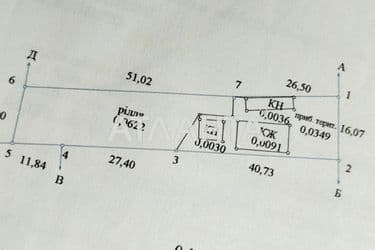 Д
А
6
51,02
7
26,50
1
КН
0,0036
рілля
0,0349
16,07
КЖ
0,0091
0,0030
5
11,84
4
27,40
3
40,73
2
В
Б